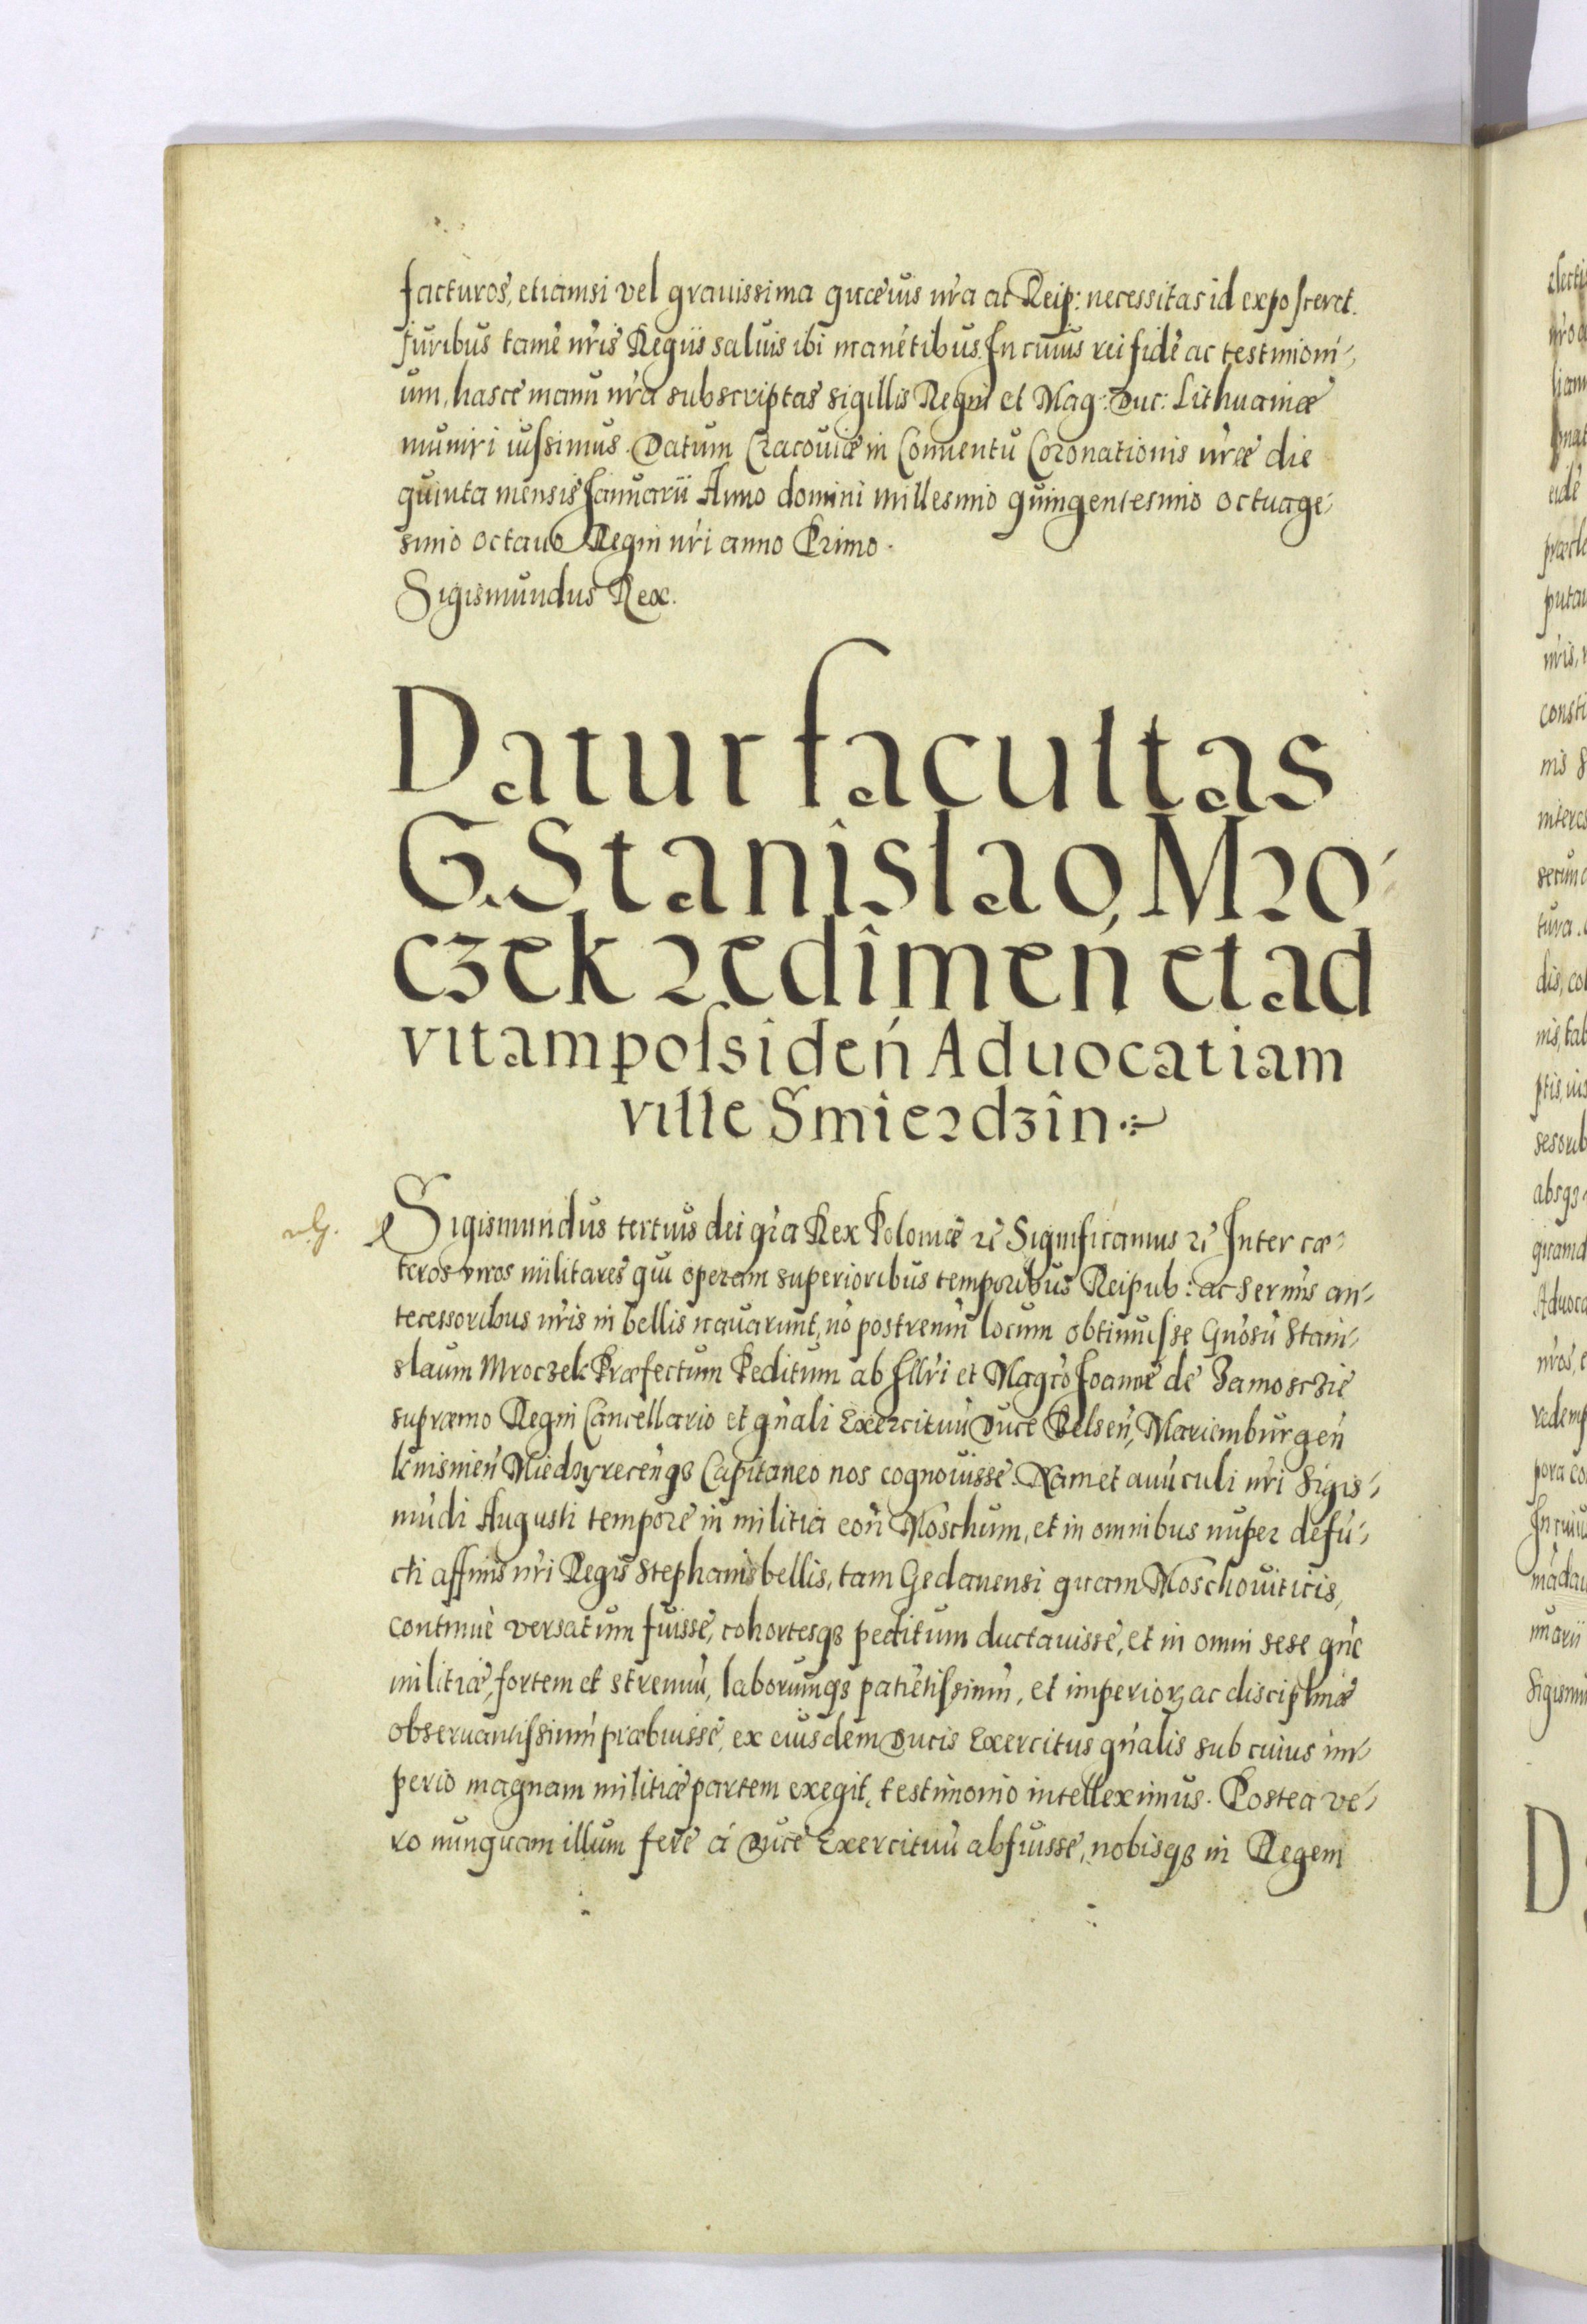 facturos, etiamsi vel grauissima quæuis nr̃a at Reip: necessitas id exposceret.
Juribus tamẽ nr̃is Regiis saluis ibi manẽtibus. In cuius rei fidẽ ac testimoni-
um, hasce manu nr̃a subscriptas sigillis Regni et Mag: Duc: Lithuaniæ
muniri iussimus. Datum Cracouiæ in Conuentu Coronationis nr̃æ die
quinta mensis Januarii Anno domini millesimo quingentesimo octuage-
simo octauo Regni nr̃i anno Primo.
Sigismundus Rex.
Datur facultas
G. Stanislao Mro-
czek redimeń et ad
vitam possideń Aduocatiam
ville Smierdzin
Sigismundus tertius dei gr̃a Rex Poloniæ Significamus Inter cæ-
teros viros militares qui operam superioribus temporibus Reipub: ac sermis an-
tecessoribus nr̃is in bellis nauarunt, nõ postremũ locum obtinuisse Gnosũ Stani-
slaum Mroczek Præfectum Peditum ab Illr̃i et Magco Joanne de Zamosczie
supræmo Regni Cancellario et gñali Exercituũ Duce Belseń, Mariemburgeń
Knisnień Miedzyreceńqȝ Capitaneo nos cognouisse. Nam et auũculi nr̃i Sigis-
mũdi Augusti tempore in militia coñ Moschum, et in omnibus nuper defũ-
cti affinis nr̃i Regis Stephani bellis, tam Gedanensi quam Moschouiticis,
continuè versatum fuisse, cohortesqȝ peditum ductauisse, et in omni sese gñe
militiæ, fortem et strenuũ, laborumqȝ patiẽtissimũ, et imperioꝝ ac disciplinæ
obseruantissimũ præbuisse, ex eiusdem Ducis Exercitus gñalis sub cuius im-
perio magnam militiæ partem exegit, testimonio intelleximus. Postea ve-
ro nunquam illum ferè à Duce Exercituũ abfuisse, nobisqȝ in Regem